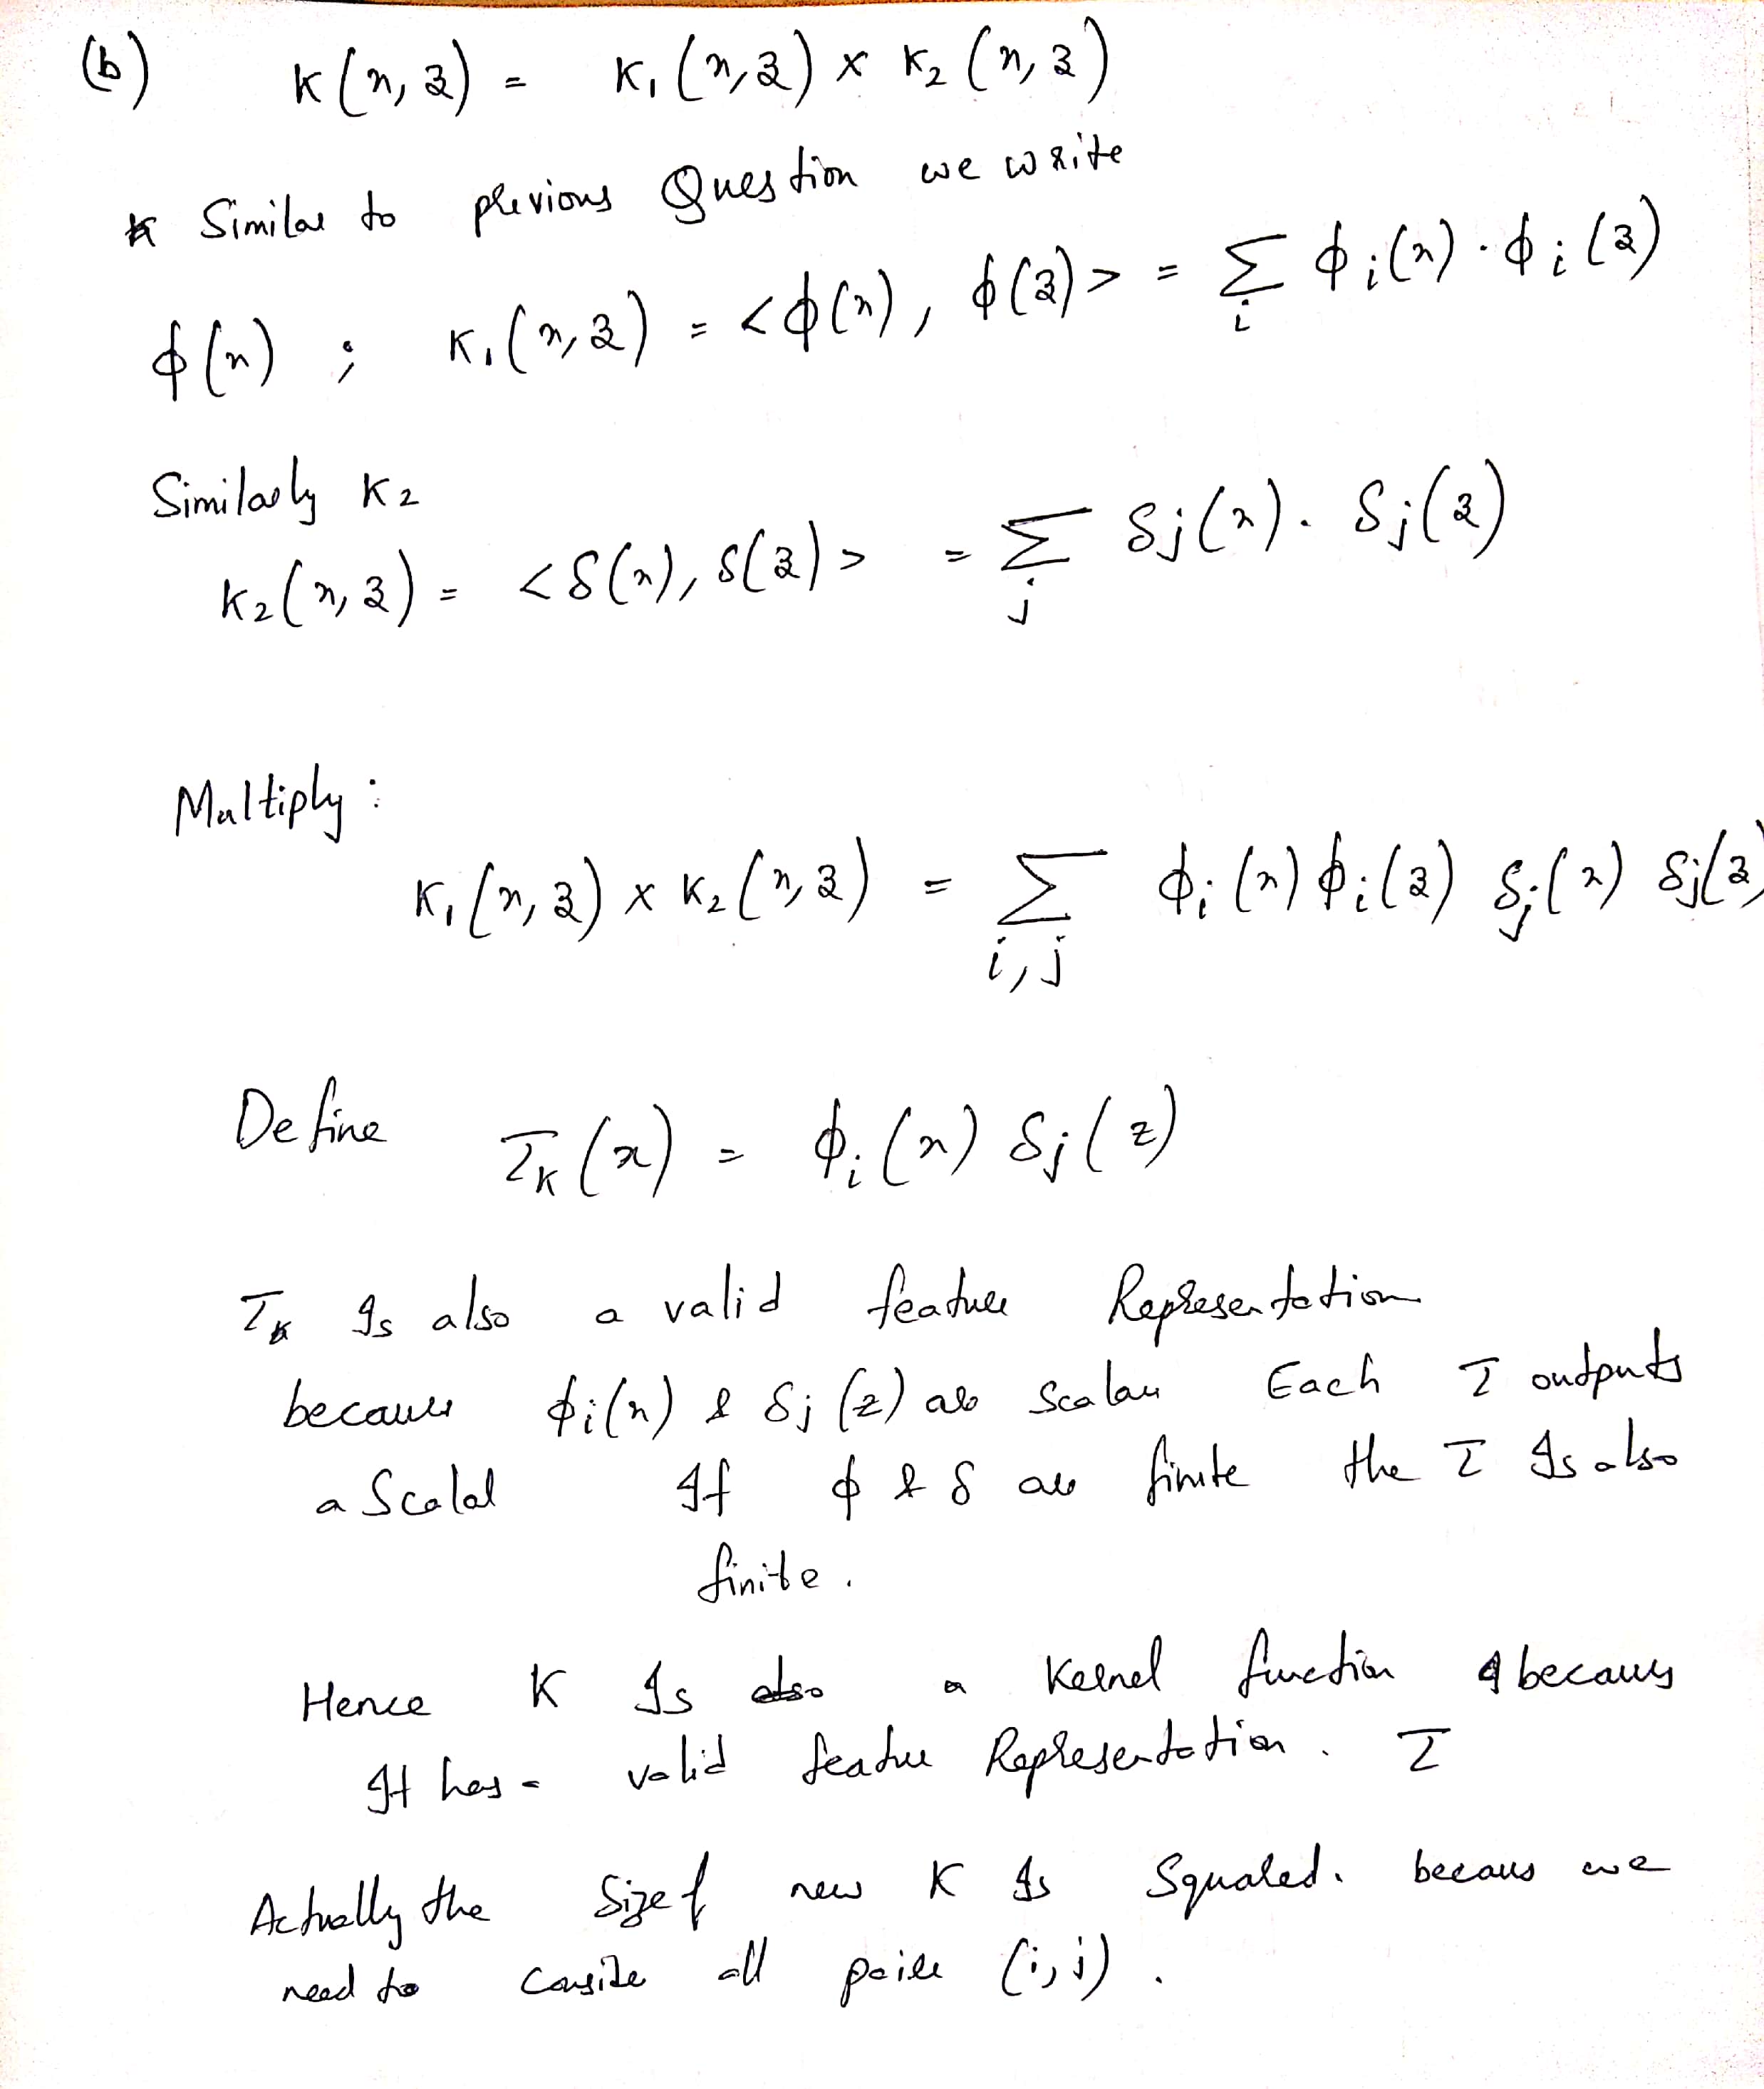 (b) K(x, z) = K₁(x, z) × K₂(x, z)
Similar to previous Question we write
ϕ(x) ; K₁(x, z) = <ϕ(x), ϕ(z)> = Σ_i ϕ_i(x) · ϕ_i(z)
Similarly K₂
K₂(x, z) = <δ(x), δ(z)> = Σ_j δ_j(x) · δ_j(z)
Multiply :
K₁(x, z) × K₂(x, z) = Σ_{i,j} ϕ_i(x) ϕ_i(z) δ_j(x) δ_j(z)
Define τ_K(x) = ϕ_i(x) δ_j(z)
τ_K Is also a valid feature Representation
because ϕ_i(x) & δ_j(z) are scalar Each τ outputs
a Scalar If ϕ & δ are finite the τ Is also
finite.
Hence K Is also a Kernel function because
It has a valid feature Representation. τ
Actually the Size of new K Is Squared. because we
need to conside all pairs (i, j) .